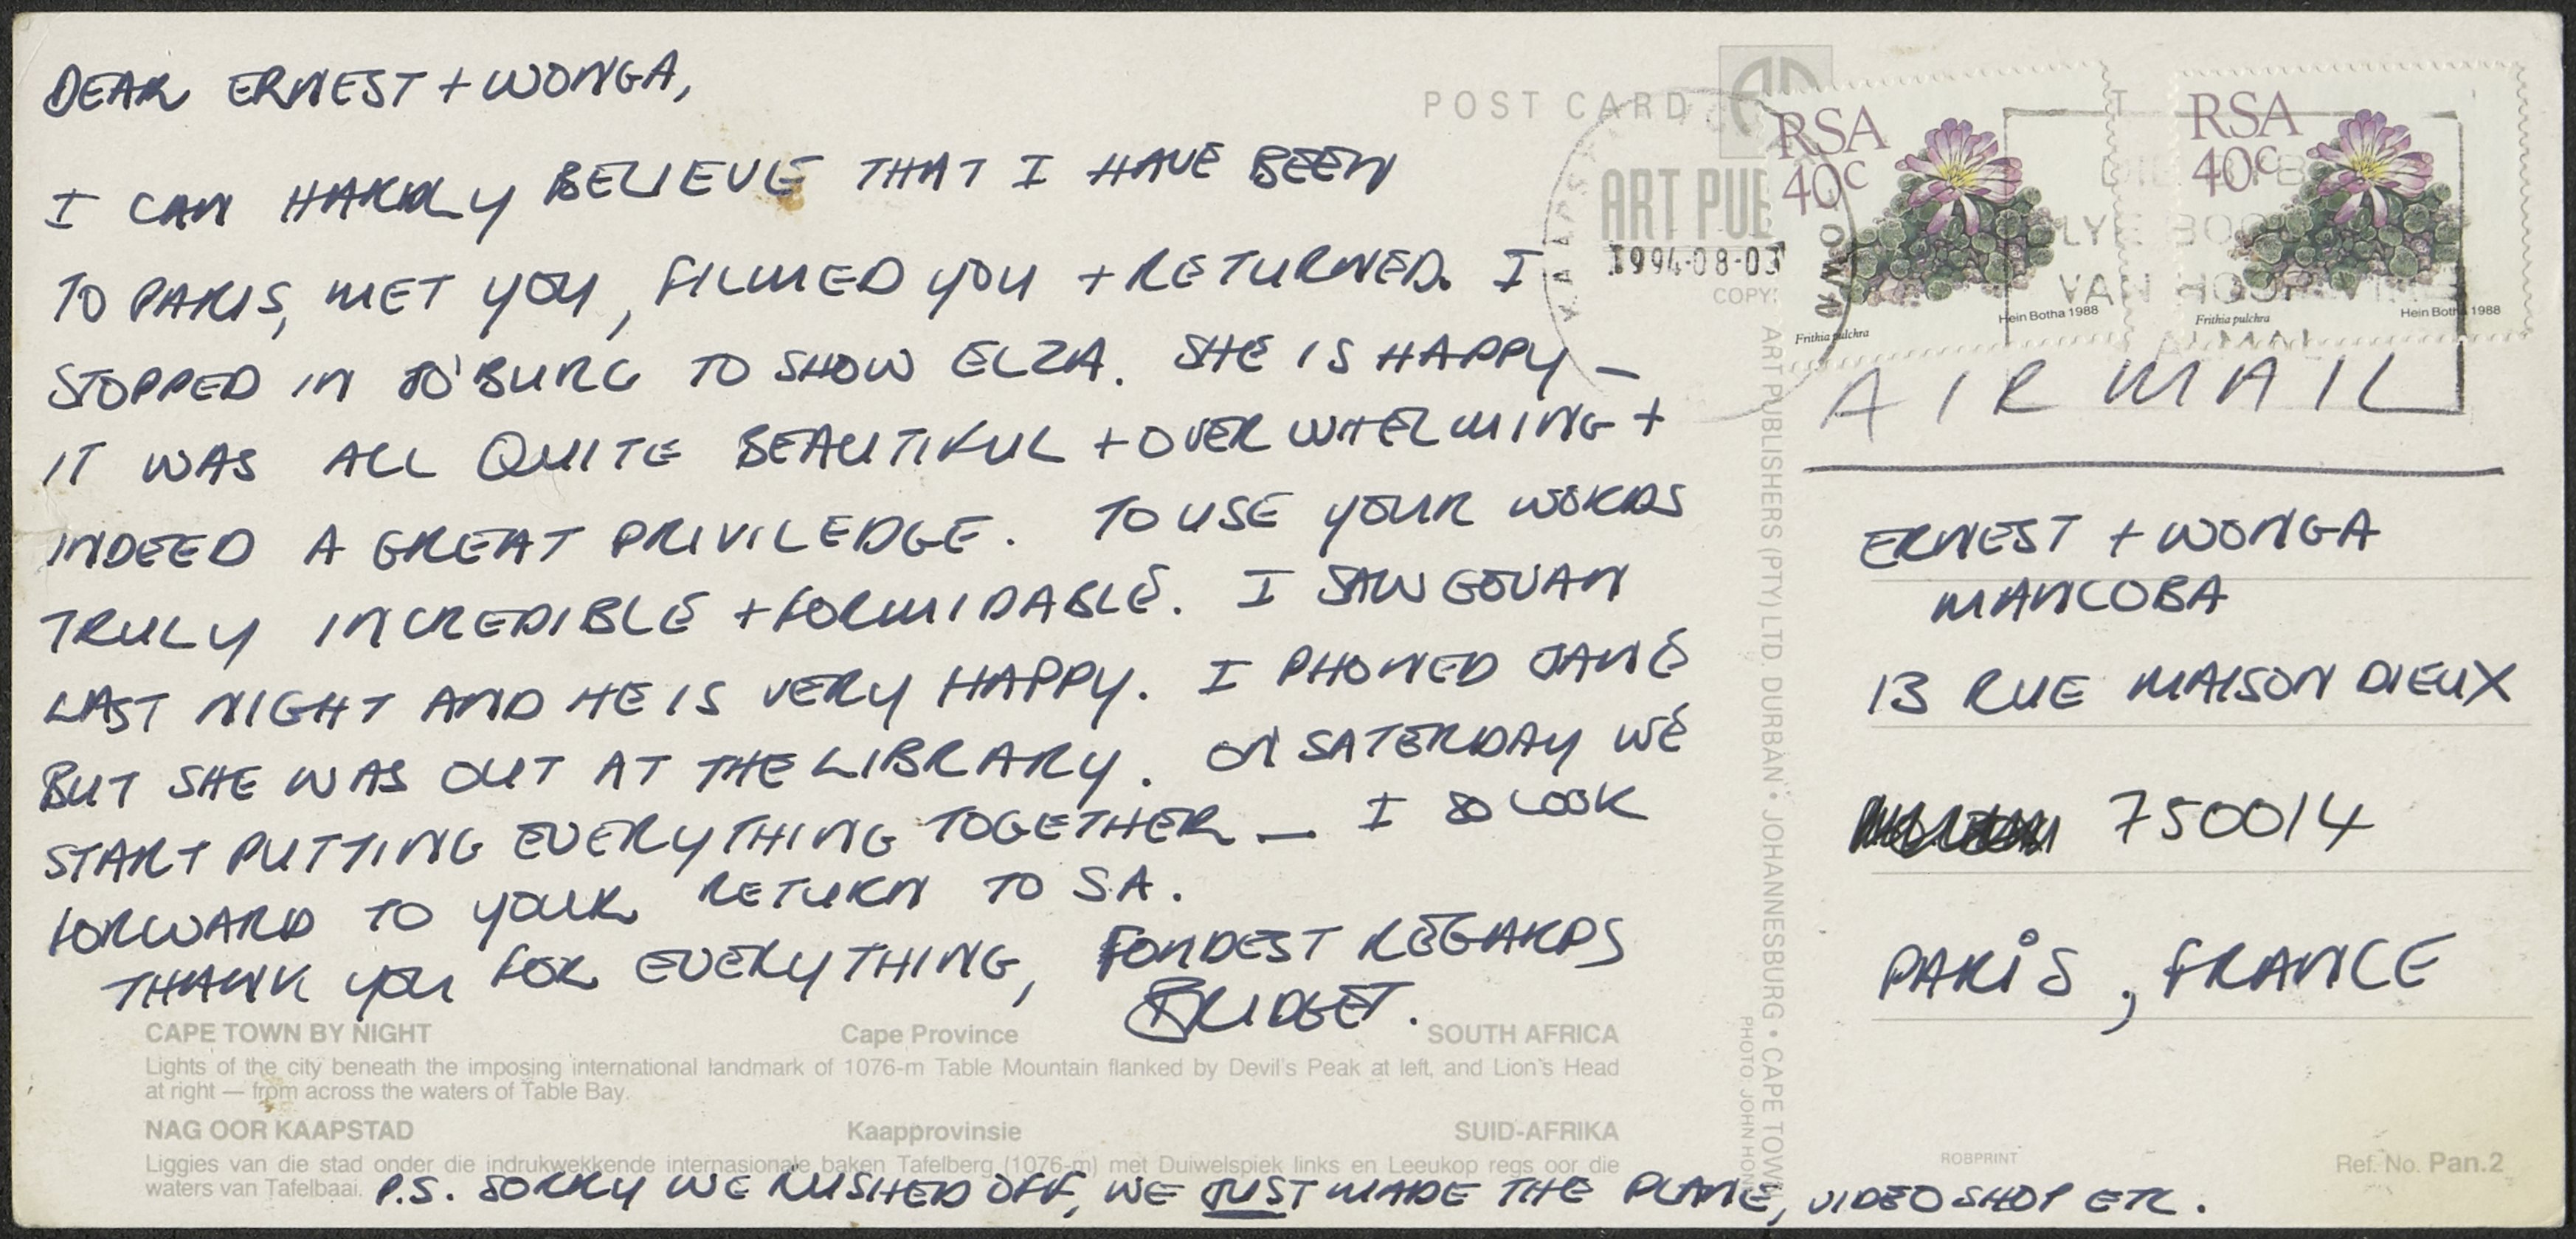 DEAR ERNEST + WONGA,
I CAN HARDLY BELIEVE THAT I HAVE BEEN
TO PARIS, MET YOU, FILMED YOU + RETURNED. I
STOPPED IN JO'BURG TO SHOW ELZA. SHE IS HAPPY —
IT WAS ALL QUITE BEAUTIFUL + OVERWHELMING +
INDEED A GREAT PRIVILEDGE. TO USE YOUR WORDS
TRULY INCREDIBLE + FORMIDABLE. I SAW GOVAN
LAST NIGHT AND HE IS VERY HAPPY. I PHONED JANE
BUT SHE WAS OUT AT THE LIBRARY. ON SATERDAY WE
START PUTTING EVERYTHING TOGETHER — I SO LOOK
FORWARD TO YOUR RETURN TO SA.
THANK YOU FOR EVERYTHING, FONDEST REGARDS
BRIDGET.
CAPE TOWN BY NIGHT Cape Province SOUTH AFRICA
Lights of the city beneath the imposing international landmark of 1076-m Table Mountain flanked by Devil's Peak at left, and Lion's Head
at right — from across the waters of Table Bay.
NAG OOR KAAPSTAD Kaapprovinsie SUID-AFRIKA
Liggies van die stad onder die indrukwekkende internasionale baken Tafelberg (1076-m) met Duiwelspiek links en Leeukop regs oor die
waters van Tafelbaai.
P.S. SORRY WE RUSHED OFF, WE JUST MADE THE PLANE, VIDEO SHOP ETC.
POST CARD
ART PUB
1994-08-03
COPY
RSA
40c
Frithia pulchra
Hein Botha 1988
RSA
40c
Frithia pulchra
Hein Botha 1988
VAN
AIR MAIL
ART PUBLISHERS (PTY) LTD. DURBAN • JOHANNESBURG • CAPE TOWN
PHOTO: JOHN
ERNEST + WONGA
MANCOBA
13 RUE MAISON DIEUX
750014
PARIS, FRANCE
ROBPRINT
Ref. No. Pan.2